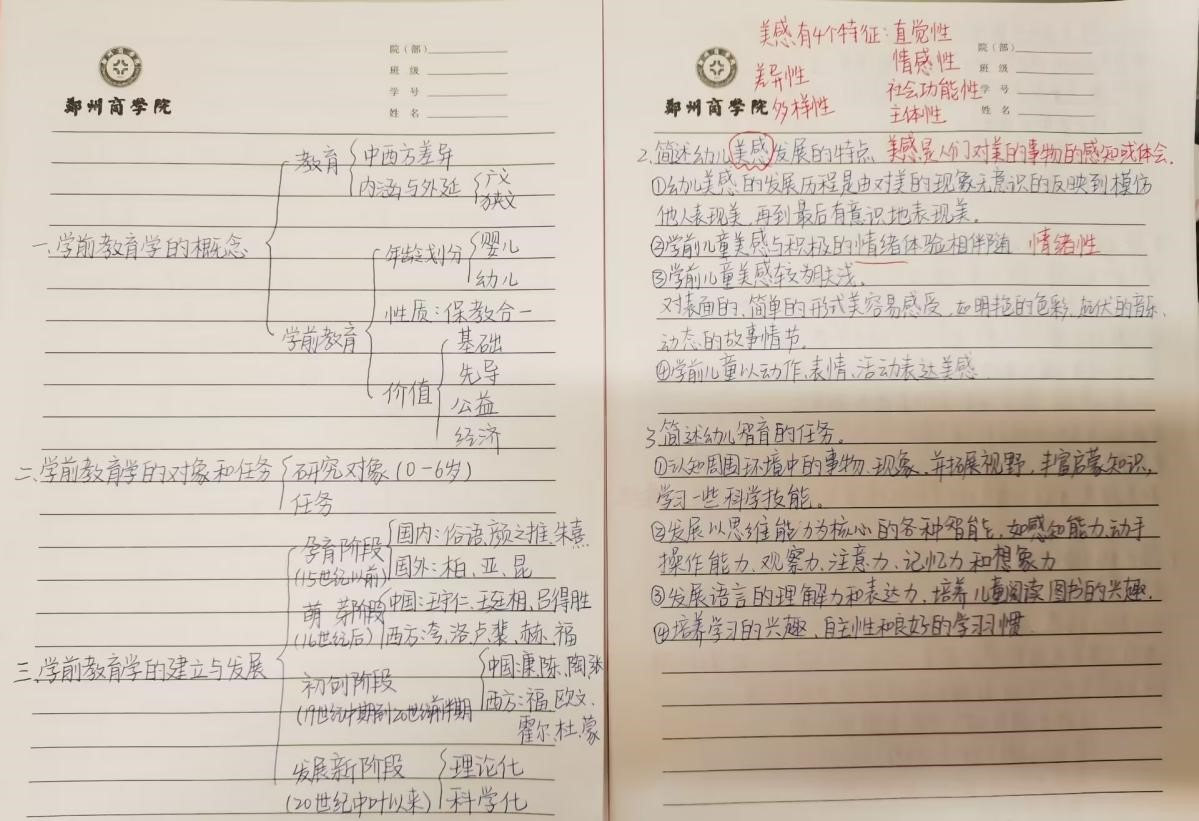 郑州商学院
院（部）
班 级
学 号
姓 名
一、学前教育学的概念
教育
中西方差异
内涵与外延
广义
狭义
学前教育
年龄划分
婴儿
幼儿
性质：保教合一
价值
基础
先导
公益
经济
二、学前教育学的对象和任务
研究对象（0-6岁）
任务
三、学前教育学的建立与发展
孕育阶段
（15世纪以前）
国内：俗语、颜之推、朱熹
国外：柏、亚、昆
萌芽阶段
（16世纪后）
中国：王守仁、王廷相、吕得胜
西方：夸、洛、卢、裴、赫、福
初创阶段
（19世纪中期到20世纪前半期
中国：康、陈、陶、张
西方：福、欧文、
霍尔、杜、蒙
发展新阶段
（20世纪中叶以来）
理论化
科学化
美感有4个特征：直觉性
情感性
社会功能性
主体性
差异性
多样性
郑州商学院
院（部）
班 级
学 号
姓 名
2.简述幼儿美感发展的特点 美感是人们对美的事物的感知或体会.
①幼儿美感的发展历程是由对美的现象无意识的反映到模仿
他人表现美，再到最后有意识地表现美。
②学前儿童美感与积极的情绪体验相伴随 情绪性
③学前儿童美感较为肤浅。
对表面的、简单的形式美容易感受，如明艳的色彩、起伏的音乐、
动态的故事情节。
④学前儿童以动作、表情、活动表达美感
3.简述幼儿智育的任务。
①认知周围环境中的事物、现象，并拓展视野，丰富启蒙知识，
学习一些科学技能。
②发展以思维能力为核心的各种智能，如感知能力、动手
操作能力、观察力、注意力、记忆力和想象力
③发展语言的理解力和表达力，培养儿童阅读图书的兴趣.
④培养学习的兴趣、自主性和良好的学习习惯